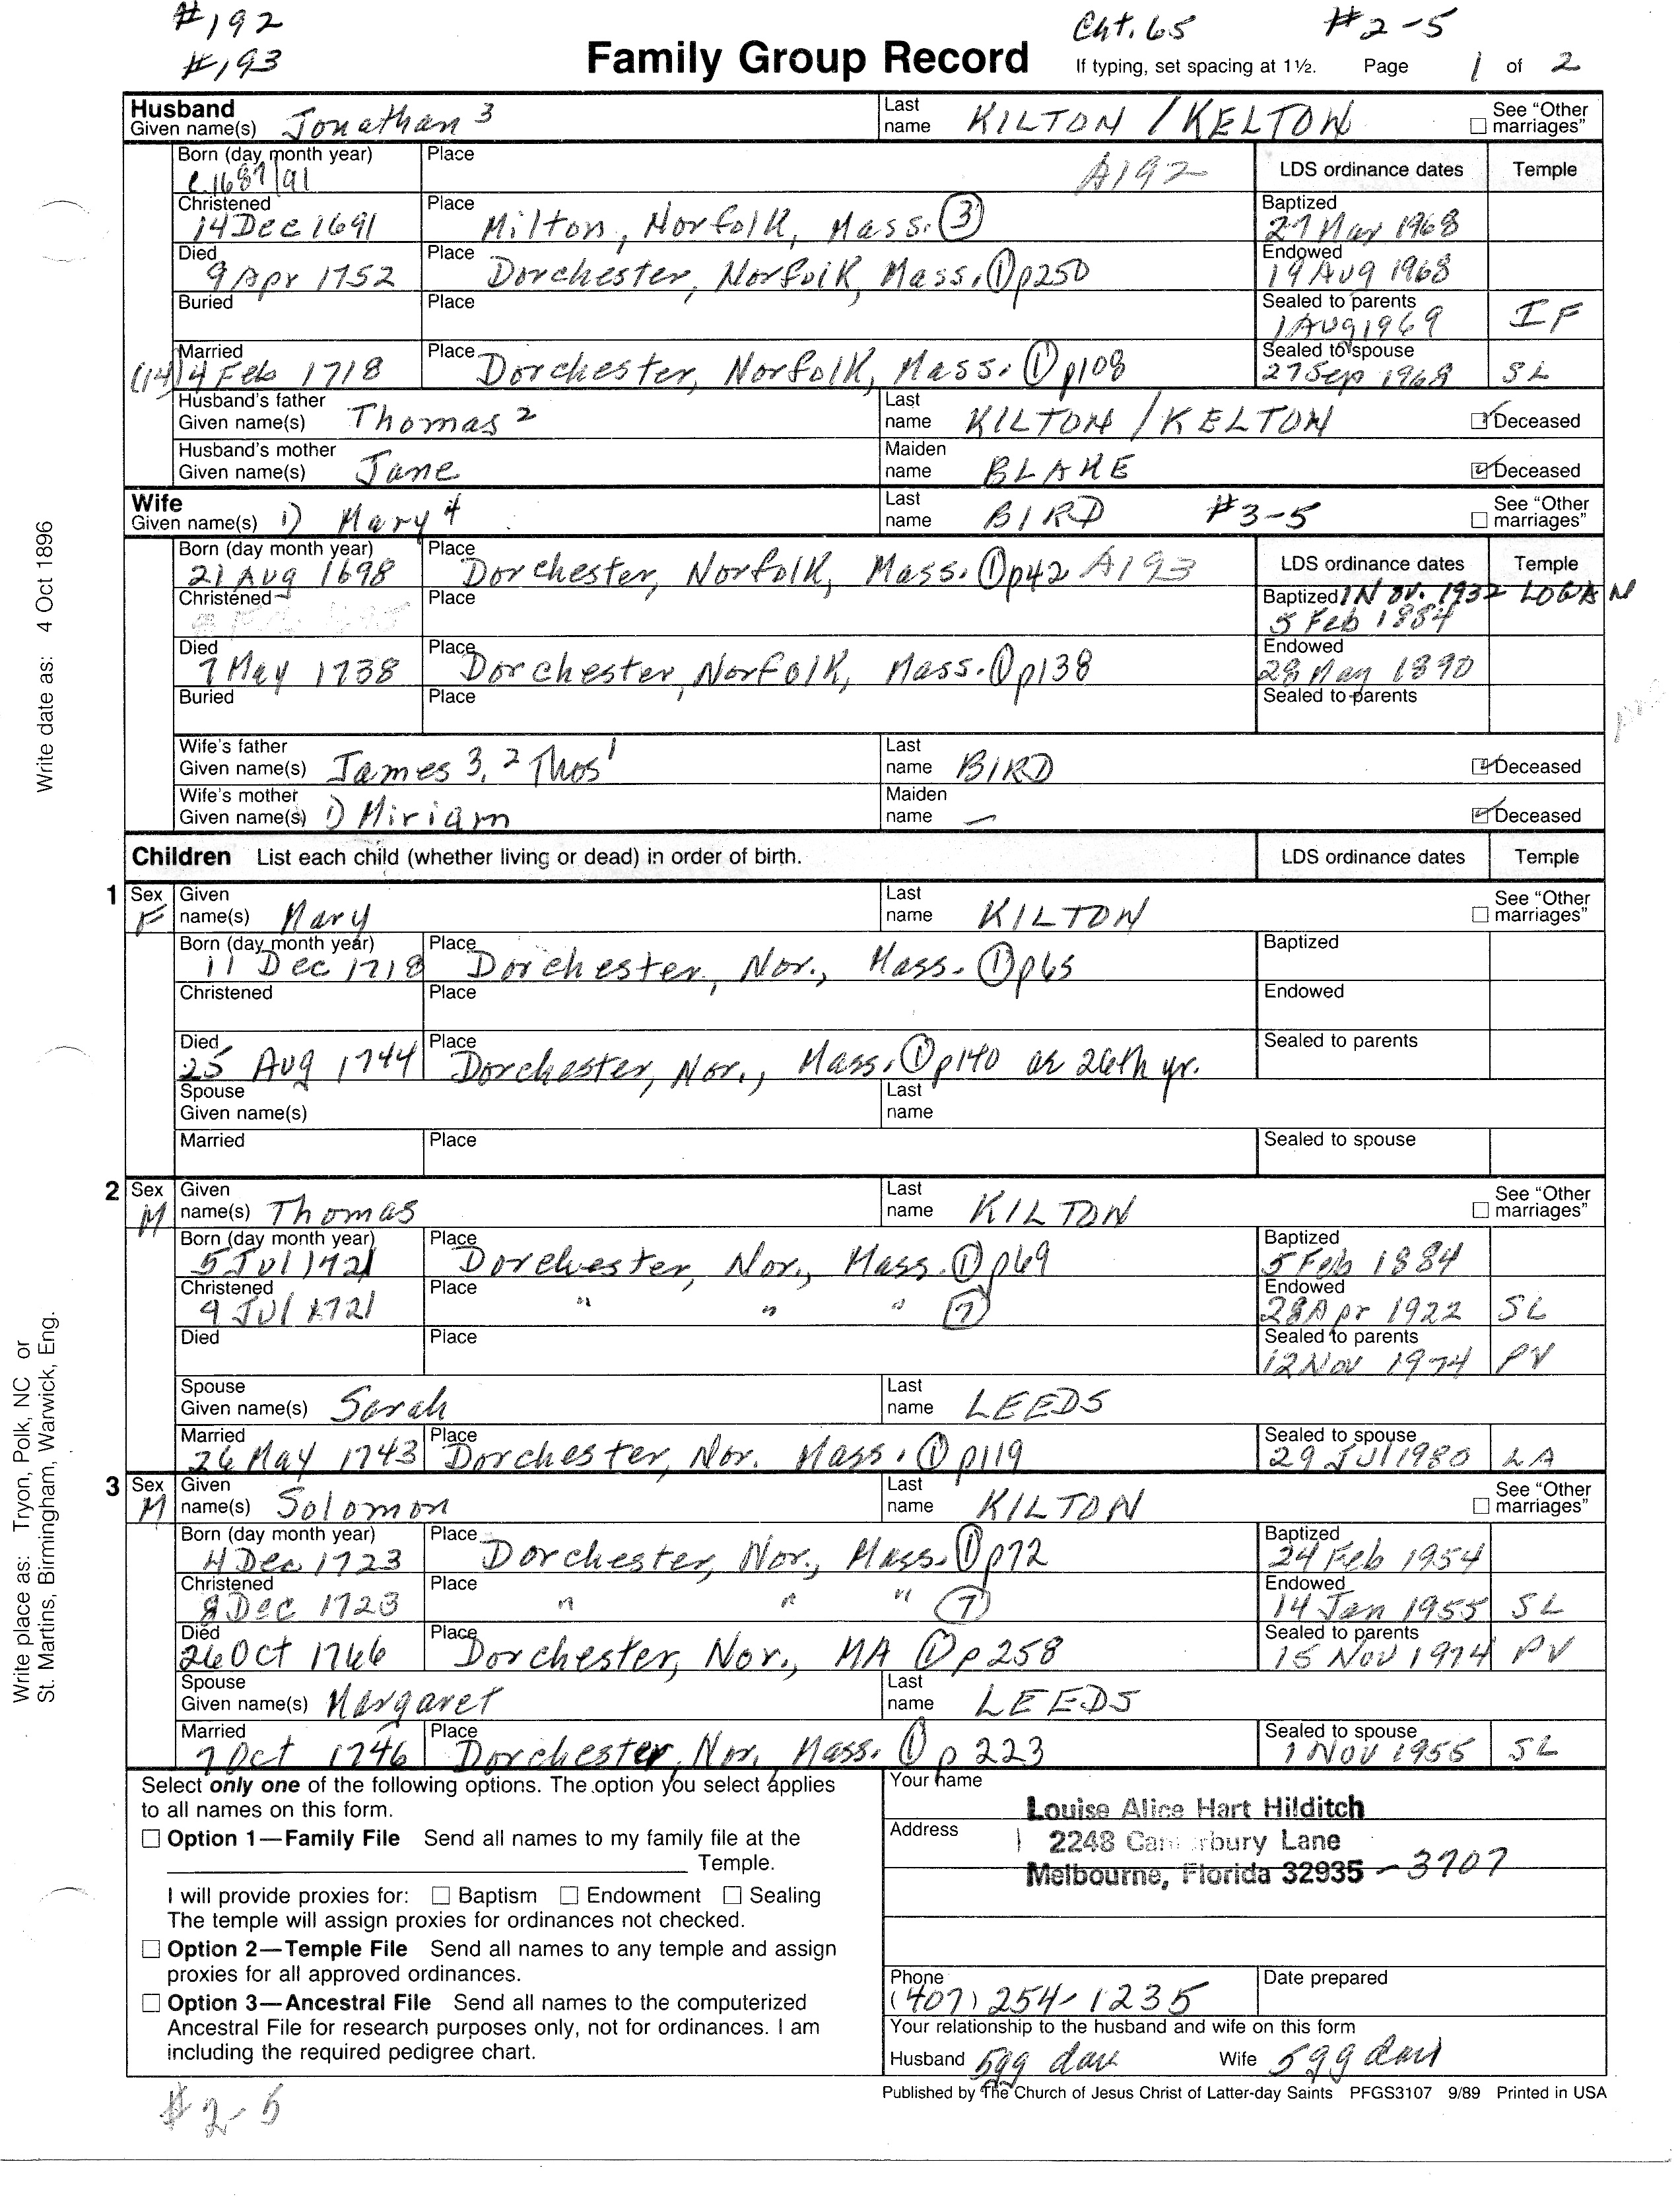 #192
#193
Cht. 65 #2-5
Family Group Record If typing, set spacing at 1½. Page 1 of 2
Husband
Given name(s) Jonathan 3 Last name KILTON / KELTON See "Other marriages"
Born (day month year) c.1687/91 Place A192 LDS ordinance dates Temple
Christened 14 Dec 1691 Place Milton, Norfolk, Mass. 3 Baptized 27 Mar 1968
Died 9 Apr 1752 Place Dorchester, Norfolk, Mass. 1 p250 Endowed 19 Aug 1968
Buried Place Sealed to parents 1 Aug 1969 IF
Married (14) 4 Feb 1718 Place Dorchester, Norfolk, Mass. 1 p108 Sealed to spouse 27 Sep 1968 SL
Husband's father
Given name(s) Thomas 2 Last name KILTON / KELTON Deceased
Husband's mother
Given name(s) Jane Maiden name BLAKE Deceased
Wife
Given name(s) 1) Mary 4 Last name BIRD #3-5 See "Other marriages"
Born (day month year) 21 Aug 1698 Place Dorchester, Norfolk, Mass. 1 p42 A193 LDS ordinance dates Temple
Christened Place Baptized 1 Nov. 1932 LOGAN
5 Feb 1884
Died 7 May 1738 Place Dorchester, Norfolk, Mass. 1 p138 Endowed 28 May 1890
Buried Place Sealed to parents
Wife's father
Given name(s) James 3, 2 Thos 1 Last name BIRD Deceased
Wife's mother
Given name(s) 1) Miriam Maiden name — Deceased
Children List each child (whether living or dead) in order of birth. LDS ordinance dates Temple
1 Sex F Given name(s) Mary Last name KILTON See "Other marriages"
Born (day month year) 11 Dec 1718 Place Dorchester, Nor., Mass. 1 p65 Baptized
Christened Place Endowed
Died 25 Aug 1744 Place Dorchester, Nor., Mass. 1 p140 ae 26th yr. Sealed to parents
Spouse
Given name(s) Last name
Married Place Sealed to spouse
2 Sex M Given name(s) Thomas Last name KILTON See "Other marriages"
Born (day month year) 5 Jul 1721 Place Dorchester, Nor., Mass. 1 p69 Baptized 5 Feb 1884
Christened 9 Jul 1721 Place " " " 7 Endowed 28 Apr 1922 SL
Died Place Sealed to parents 12 Nov 1974 PV
Spouse
Given name(s) Sarah Last name LEEDS
Married 26 May 1743 Place Dorchester, Nor. Mass. 1 p119 Sealed to spouse 29 Jul 1980 LA
3 Sex M Given name(s) Solomon Last name KILTON See "Other marriages"
Born (day month year) 4 Dec 1723 Place Dorchester, Nor., Mass. 1 p72 Baptized 24 Feb 1954
Christened 8 Dec 1723 Place " " " 7 Endowed 14 Jan 1955 SL
Died 26 Oct 1766 Place Dorchester, Nor., MA 1 p258 Sealed to parents 15 Nov 1974 PV
Spouse
Given name(s) Margaret Last name LEEDS
Married 7 Oct 1746 Place Dorchester, Nor. Mass. 1 p 223 Sealed to spouse 1 Nov 1955 SL
Select only one of the following options. The option you select applies
to all names on this form.
Option 1—Family File Send all names to my family file at the
Temple.
I will provide proxies for: Baptism Endowment Sealing
The temple will assign proxies for ordinances not checked.
Option 2—Temple File Send all names to any temple and assign
proxies for all approved ordinances.
Option 3—Ancestral File Send all names to the computerized
Ancestral File for research purposes only, not for ordinances. I am
including the required pedigree chart.
Your name
Louise Alice Hart Hilditch
Address 2248 Canterbury Lane
Melbourne, Florida 32935 - 3707
Phone (407) 254-1235 Date prepared
Your relationship to the husband and wife on this form
Husband 5gg dau Wife 5gg dau
Published by The Church of Jesus Christ of Latter-day Saints PFGS3107 9/89 Printed in USA
#2-5
Write date as: 4 Oct 1896
Write place as: Tryon, Polk, NC or
St. Martins, Birmingham, Warwick, Eng.